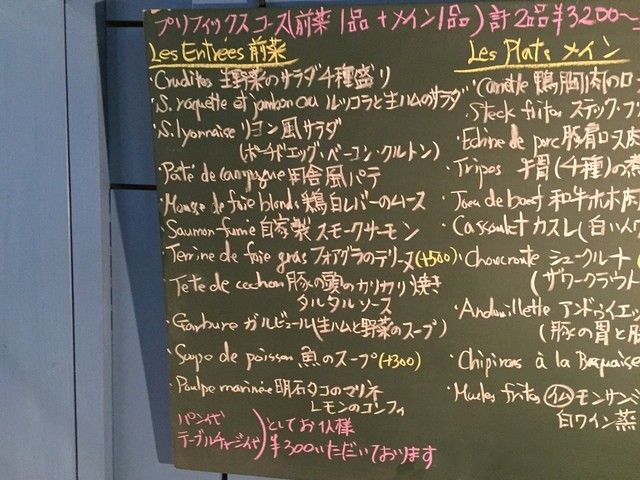 プリフィックスコース(前菜1品+メイン1品)計2品¥3200~
Les Entrées 前菜
・Crudites 生野菜のサラダ4種盛り
・S. roquette et jambon cru ルッコラと生ハムのサラダ
・S. lyonnaise リヨン風サラダ
(ポーチドエッグ・ベーコン・クルトン)
・Pâté de campagne 田舎風パテ
・Mousse de foie blonds 鶏白レバーのムース
・Saumon fumé 自家製スモークサーモン
・Terrine de foie gras フォアグラのテリーヌ(+500)
・Tête de cochon 豚の頭のカリカリ焼き
タルタルソース
・Garbure ガルビュール(生ハムと野菜のスープ)
・Soupe de poisson 魚のスープ(+300)
・Poulpe marinée 明石タコのマリネ
レモンのコンフィ
パン代
テーブルチャージ代
としてお1人様
¥300いただいております
Les Plats メイン
・Canette 鴨胸肉のロ
・Steck frites ステック・フ
・Echine de porc 豚肩ロース肉
・Tripes 牛胃(4種)の煮
・Joue de boeuf 和牛ホホ肉
・Cassoulet カスレ(白いん
・Choucroute シュークルート
(ザワークラウト
・Andouillette アンドゥイエッ
(豚の胃と腸
・Chipirons à la Basquaise
・Moules frites 仏モンサンミ
白ワイン蒸